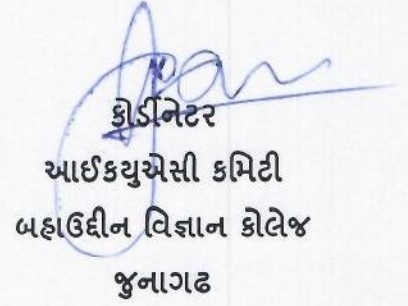 કોર્ડીનેટર
આઈકયુએસી કમિટી
બહાઉદ્દીન વિજ્ઞાન કોલેજ
જુનાગઢ